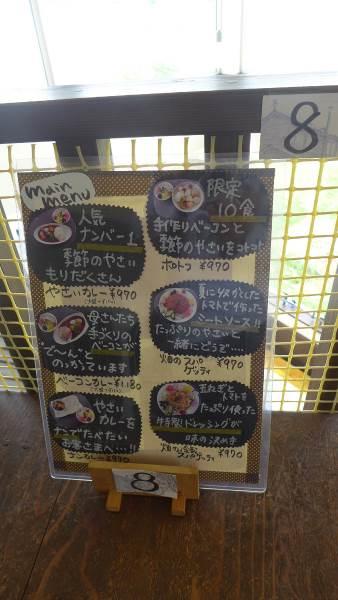 8
main
menu
人気
ナンバー1
季節のやさい
もりだくさん
やさいカレー ¥970
限定
10食
手作りベーコンと
季節のやさいをコトコト
ポトフ ¥970
母さんたち
手造りの
ベーコンが
で〜んと
のっかています
ベーコンカレー ¥1180
真に
トマトで作った
ミートソース!!
たっぷりのやさいと
一緒にどうぞ…
畑のスパ
ゲッティ ¥970
やさい
カレーを
たべたい
お客さまへ…!!
カレー ¥970
玉ねぎと
トマトを
たっぷり使った
ドレッシングが
味の決め手
¥970
8